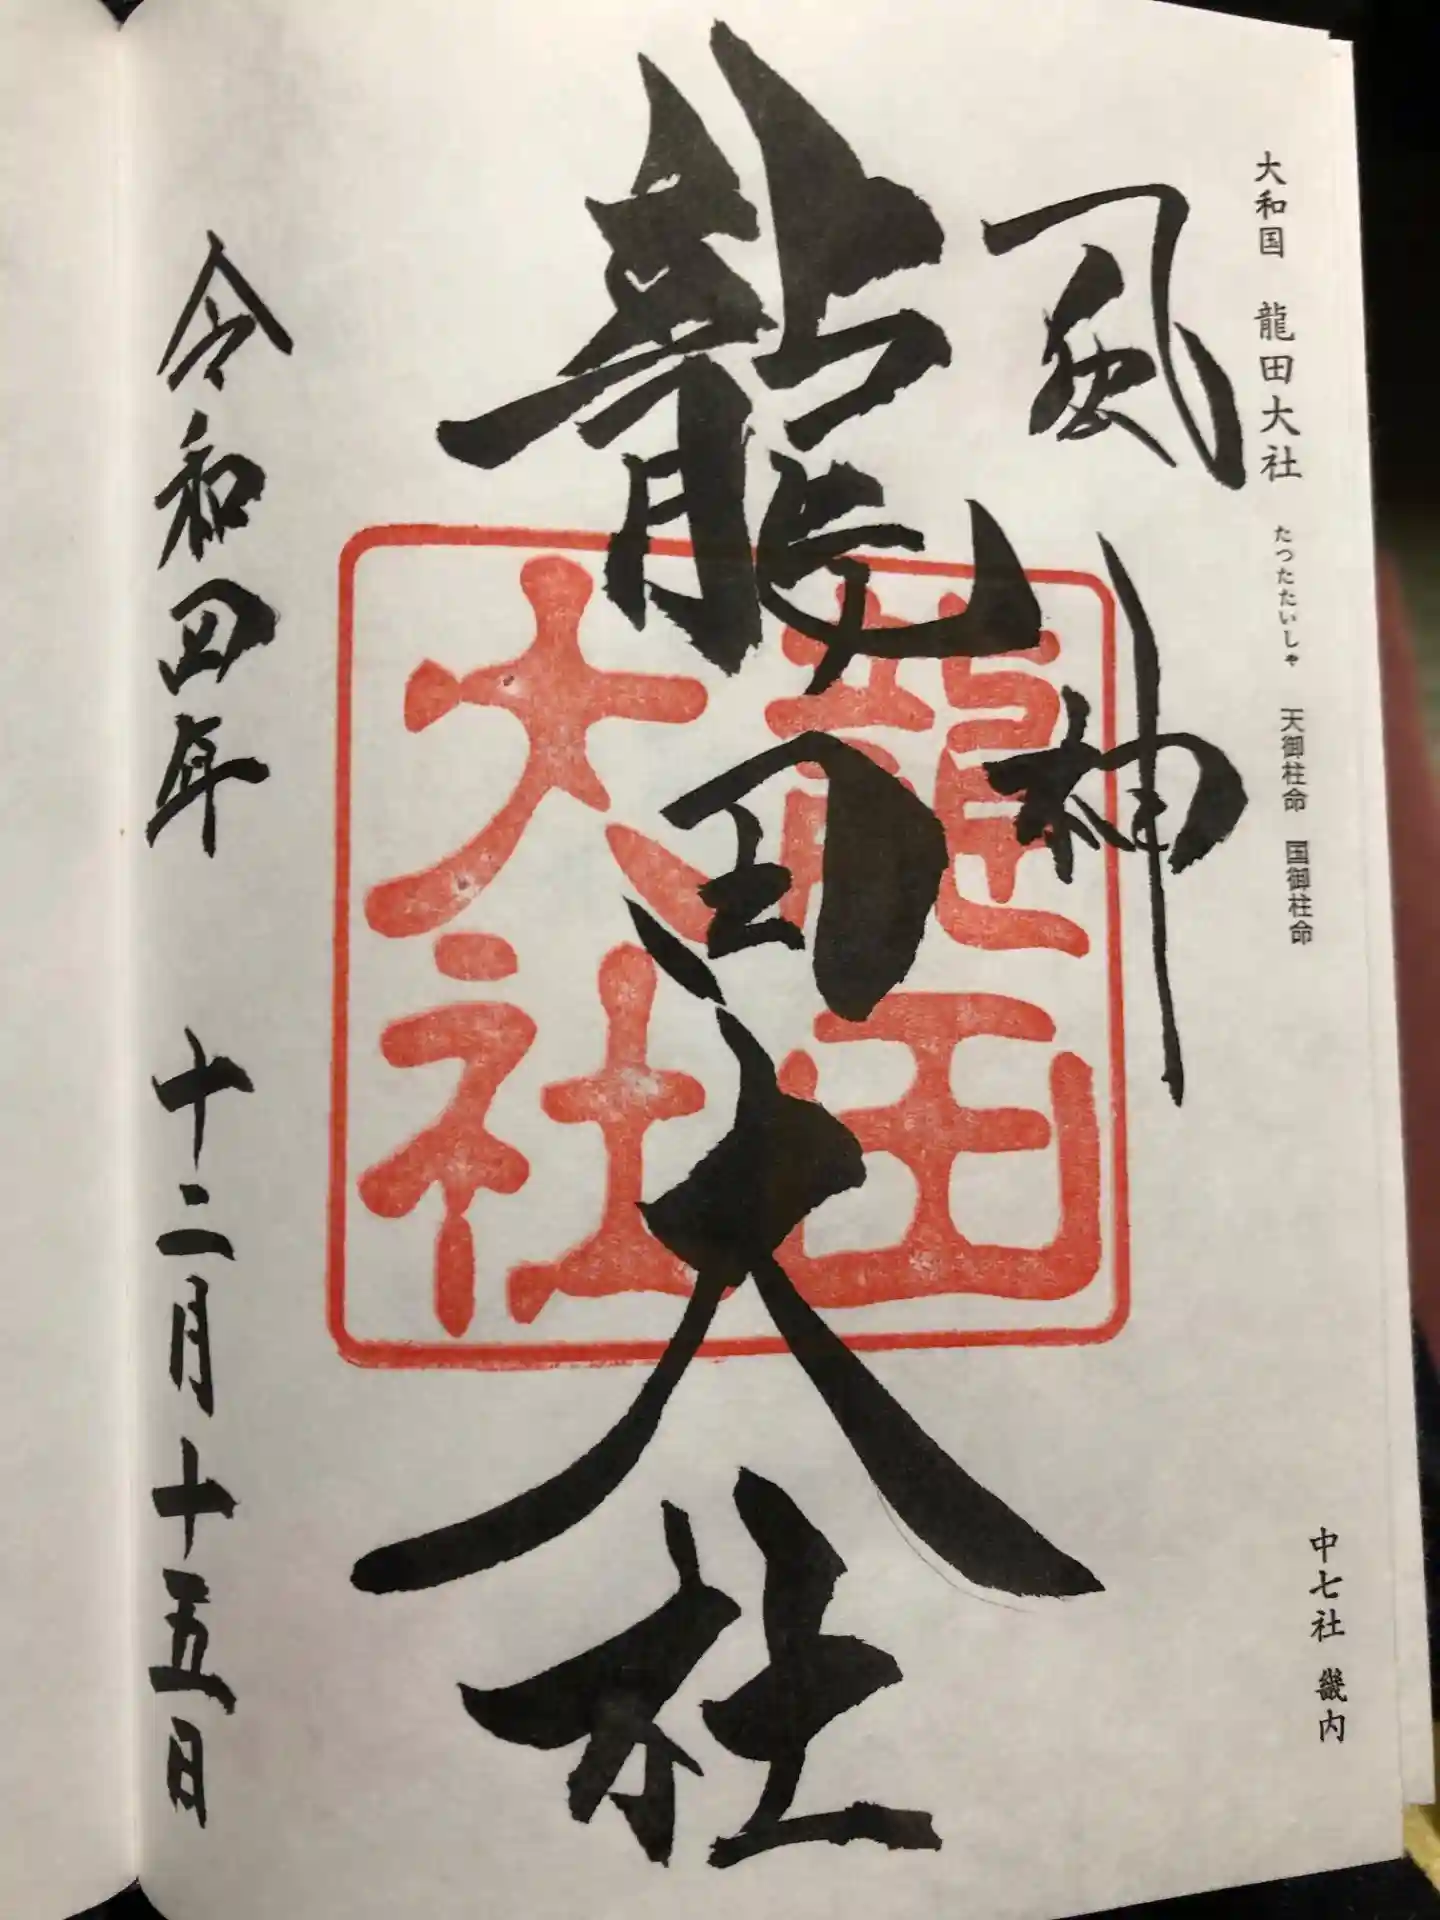 大和国 龍田大社 たつたたいしゃ 天御柱命 国御柱命
中七社 畿内
風神
龍田大社
龍田
大社
令和四年 十二月十五日